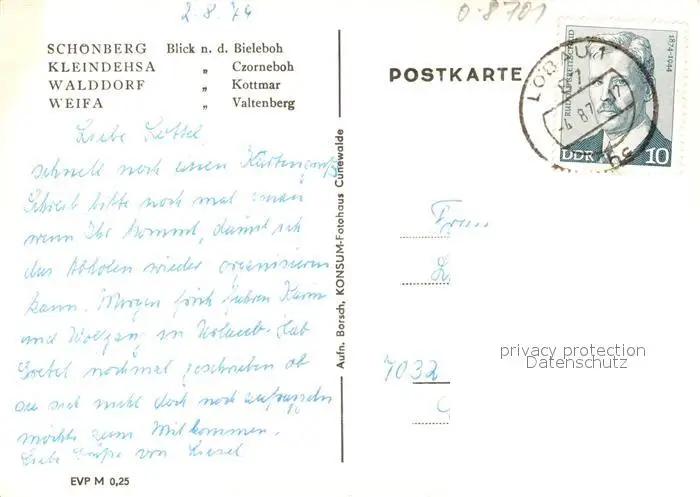 2.8.74
0-8701
SCHÖNBERG Blick n. d. Bieleboh
KLEINDEHSA „ Czorneboh
WALDDORF „ Kottmar
WEIFA „ Valtenberg
POSTKARTE
LÖBAU 1
RUDOLF BREITSCHEID
1874-1944
DDR 10
Liebe
schnell noch einen Kartengruß
Schreib bitte noch mal genau
wenn Ihr kommt, damit ich
das Abholen wieder organisieren
kann. Morgen früh fahren Karin
und Wolfgang in Urlaub. Hab
Goebel nochmal geschrieben ob
sie sich nicht doch noch aufraffeln
möchte zum Mitkommen.
Liebe Grüße von Liesel
Aufn. Borsch, KONSUM-Fotohaus Cunewalde
Frau
L
7032
privacy protection
Datenschutz
EVP M 0,25